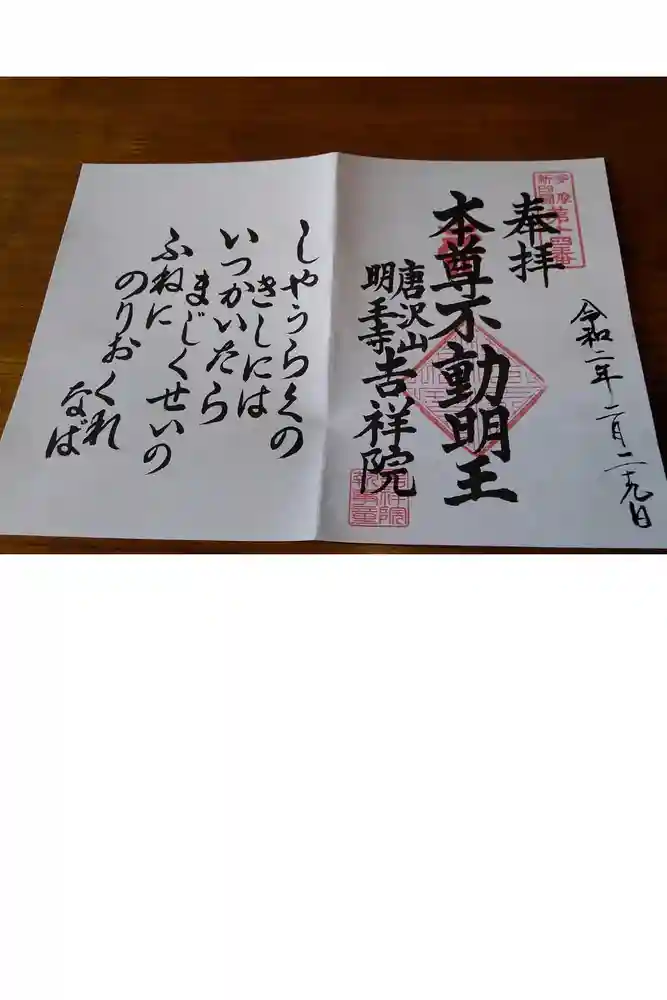 奉拝
令和二年二月二十九日
本尊不動明王
唐沢山
明王寺
吉祥院
しやうらくの
きしには
いつかいたら
まじくせいの
ふねに
のりおくれ
なば